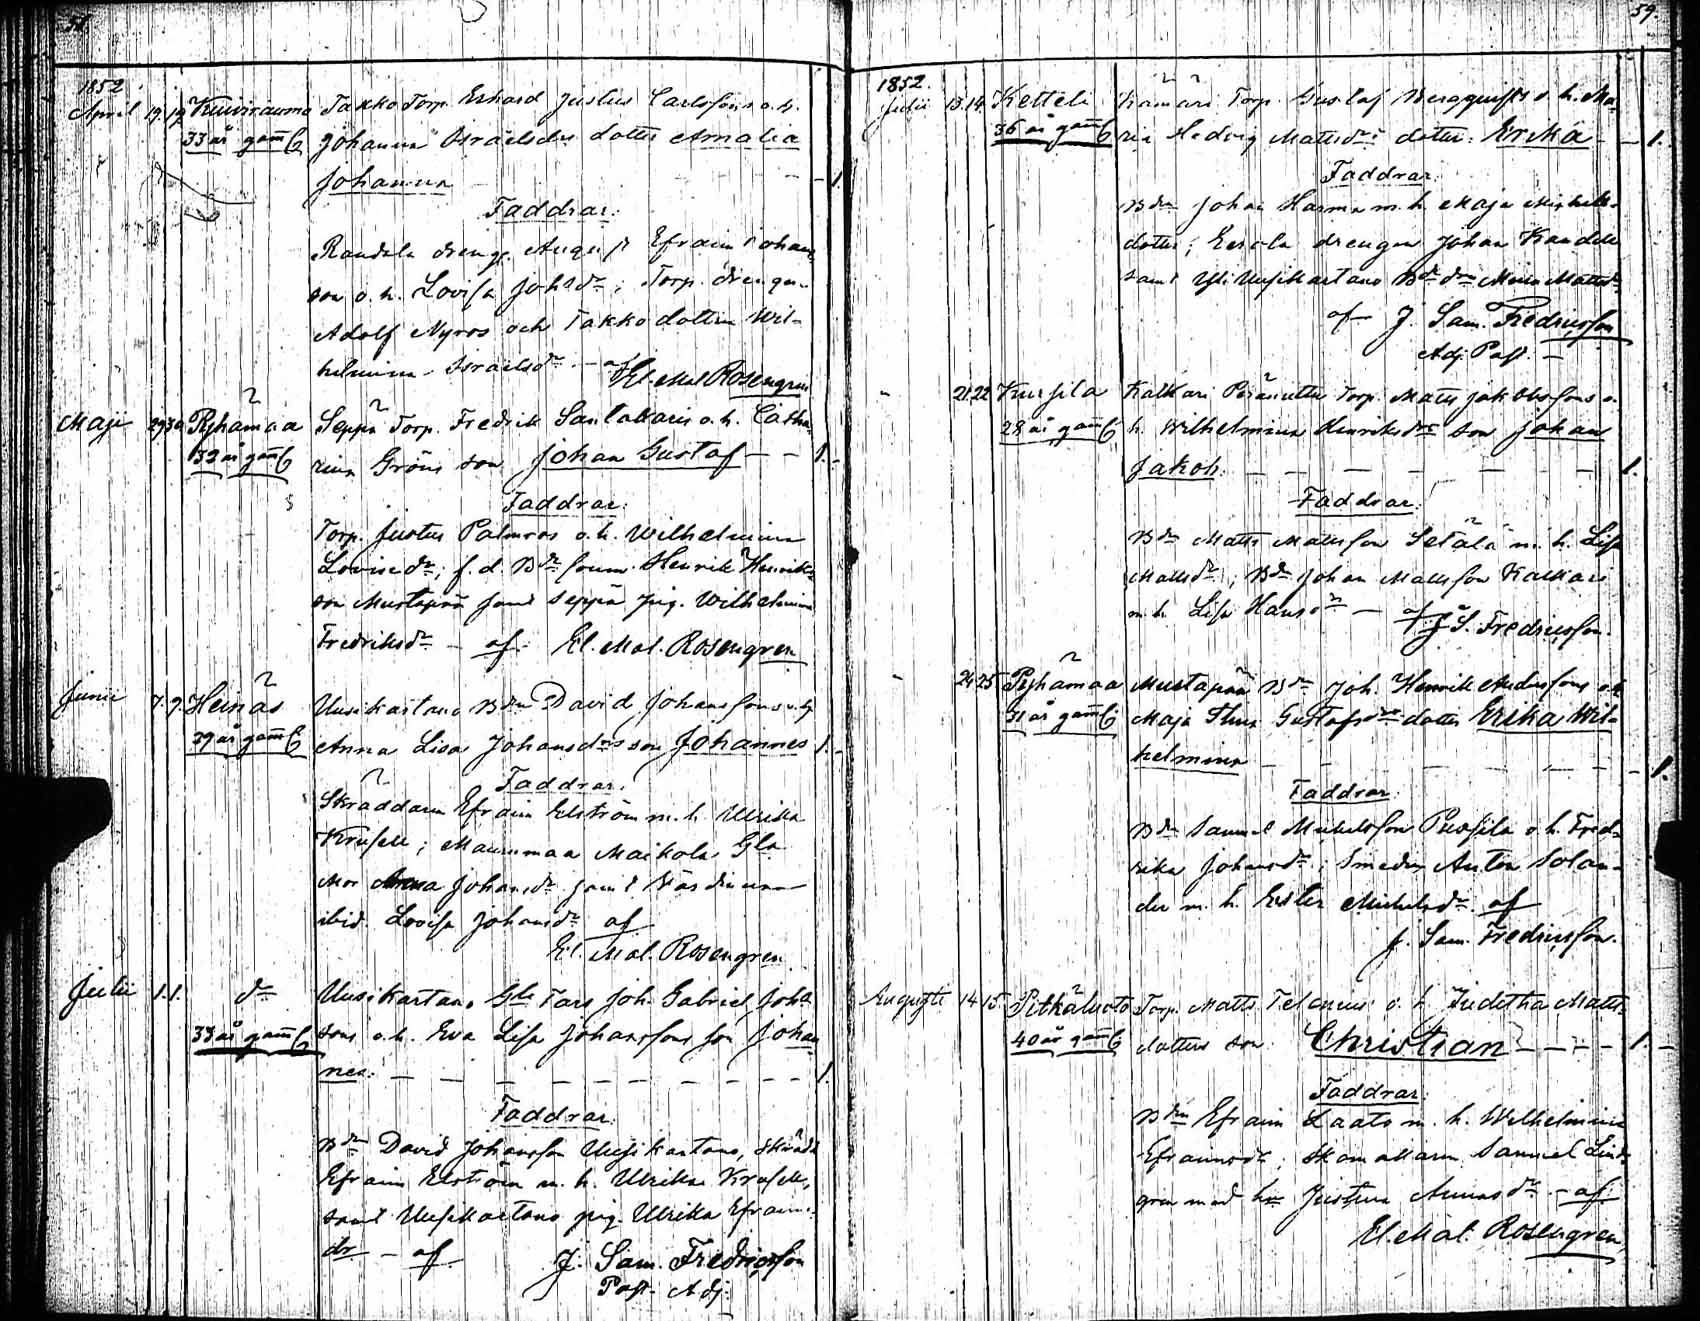 58.
1852.
April 19. 19 Kuivirauma Takko Torp. Erhard Justus Carlssons o. h.
33 år gam̄l Johanna Israelsdrs dotter Amalia
Johanna — 1.
Faddrar:
Randala dreng August Efraim Johans-
son o. h. Lovisa Johsdr; Torp. drengen
Adolf Nyroos och Takko dottren Wil-
helmina Israelsdr. — af El. Mal. Rosengren
Maji 29 30 Pyhämaa Seppä Torp. Fredrik Santalaxis o. h. Catha-
32 år gam̄l rina Gröns son Johan Gustaf — — 1.
Faddrar:
Torp. Justus Palmros o. h. Wilhelmina
Lovisedr; f. d. Bdn Henrik Henriks-
son Mustapää samt Seppä pig. Wilhelmina
Fredriksdr — af El. Mal. Rosengren
Junii 7. 9. Heinäs Uusikartano Bdn David Johanssons o. h.
29 år gam̄l Anna Lisa Johansdrs son Johannes 1.
Faddrar:
Skräddarn Efraim Elström m. h. Ulrika
Krusell; Maurumaa Maikola Gla
Mor Anna Johansdr samt
ibid. Lovisa Johansdr af
El. Mal. Rosengren
Julii 1. 1. dn Uusikartano Gla Fars Joh. Gabriel Johs-
33 år gam̄l sons o. h. Eva Lisa Johanssons son Johan-
nes. — — — — — — — — 1.
Faddrar:
Bdn David Johansson Uusikartano, Skrädd
Efraim Elström m. h. Ulrika Krusell,
samt Uusikartano pig. Ulrika Efraims-
dr — af J. Sam. Fredricsson
Past. Adj.
59.
1852.
Julii 13. 14. Ketteli Kämäri Torp. Gustaf Bergquists o. h. Ma-
36 år gam̄l ria Hedvig Mattsdrs dotter: Erika — — 1.
Faddrar:
Bdn Johan Harma m. h. Maja Michels-
dotter; Eerola drengen Johan Kandell
samt Yli Uusikartano Bde drn Maria Mattsdr
af J. Sam. Fredricsson
Adj. Past. —
21. 22 Kursila Kalkari Torp. Matts Jakobssons o.
28 år gam̄l h. Wilhelmina Henriksdrs son Johan
Jakob. — — — — — — 1.
Faddrar:
Bdn Matts Mattsson Setälä m. h. Lisa
Mattsdr; Bdn Johan Mattsson Kalkari
m. h. Lisa Hansdr — af J. S. Fredricsson.
24 25 Pyhämaa Mustapää Bdn Joh. Henrik Anderssons o. h.
31 år gam̄l Maja Stina Gustafsdrs dotter Erika Wil-
helmina — — — — — — — 1.
Faddrar:
Bdn Samuel Michelsson o. h. Fred-
rika Johansdr; Smeden Anton Solan-
der m. h. Ester Michelsdr af
J. Sam. Fredricsson.
Augusti 14 15. Pitkäluoto Torp. Matts Telenius o. h. Juditha Matts-
40 år gam̄l dotters son Christian — — — 1. —
Faddrar:
Bdn Efraim Laato m. h. Wilhelmina
Efraimsdr; Skomakarn Samuel Lind-
gren med hu Justina — af
El. Mal. Rosengren